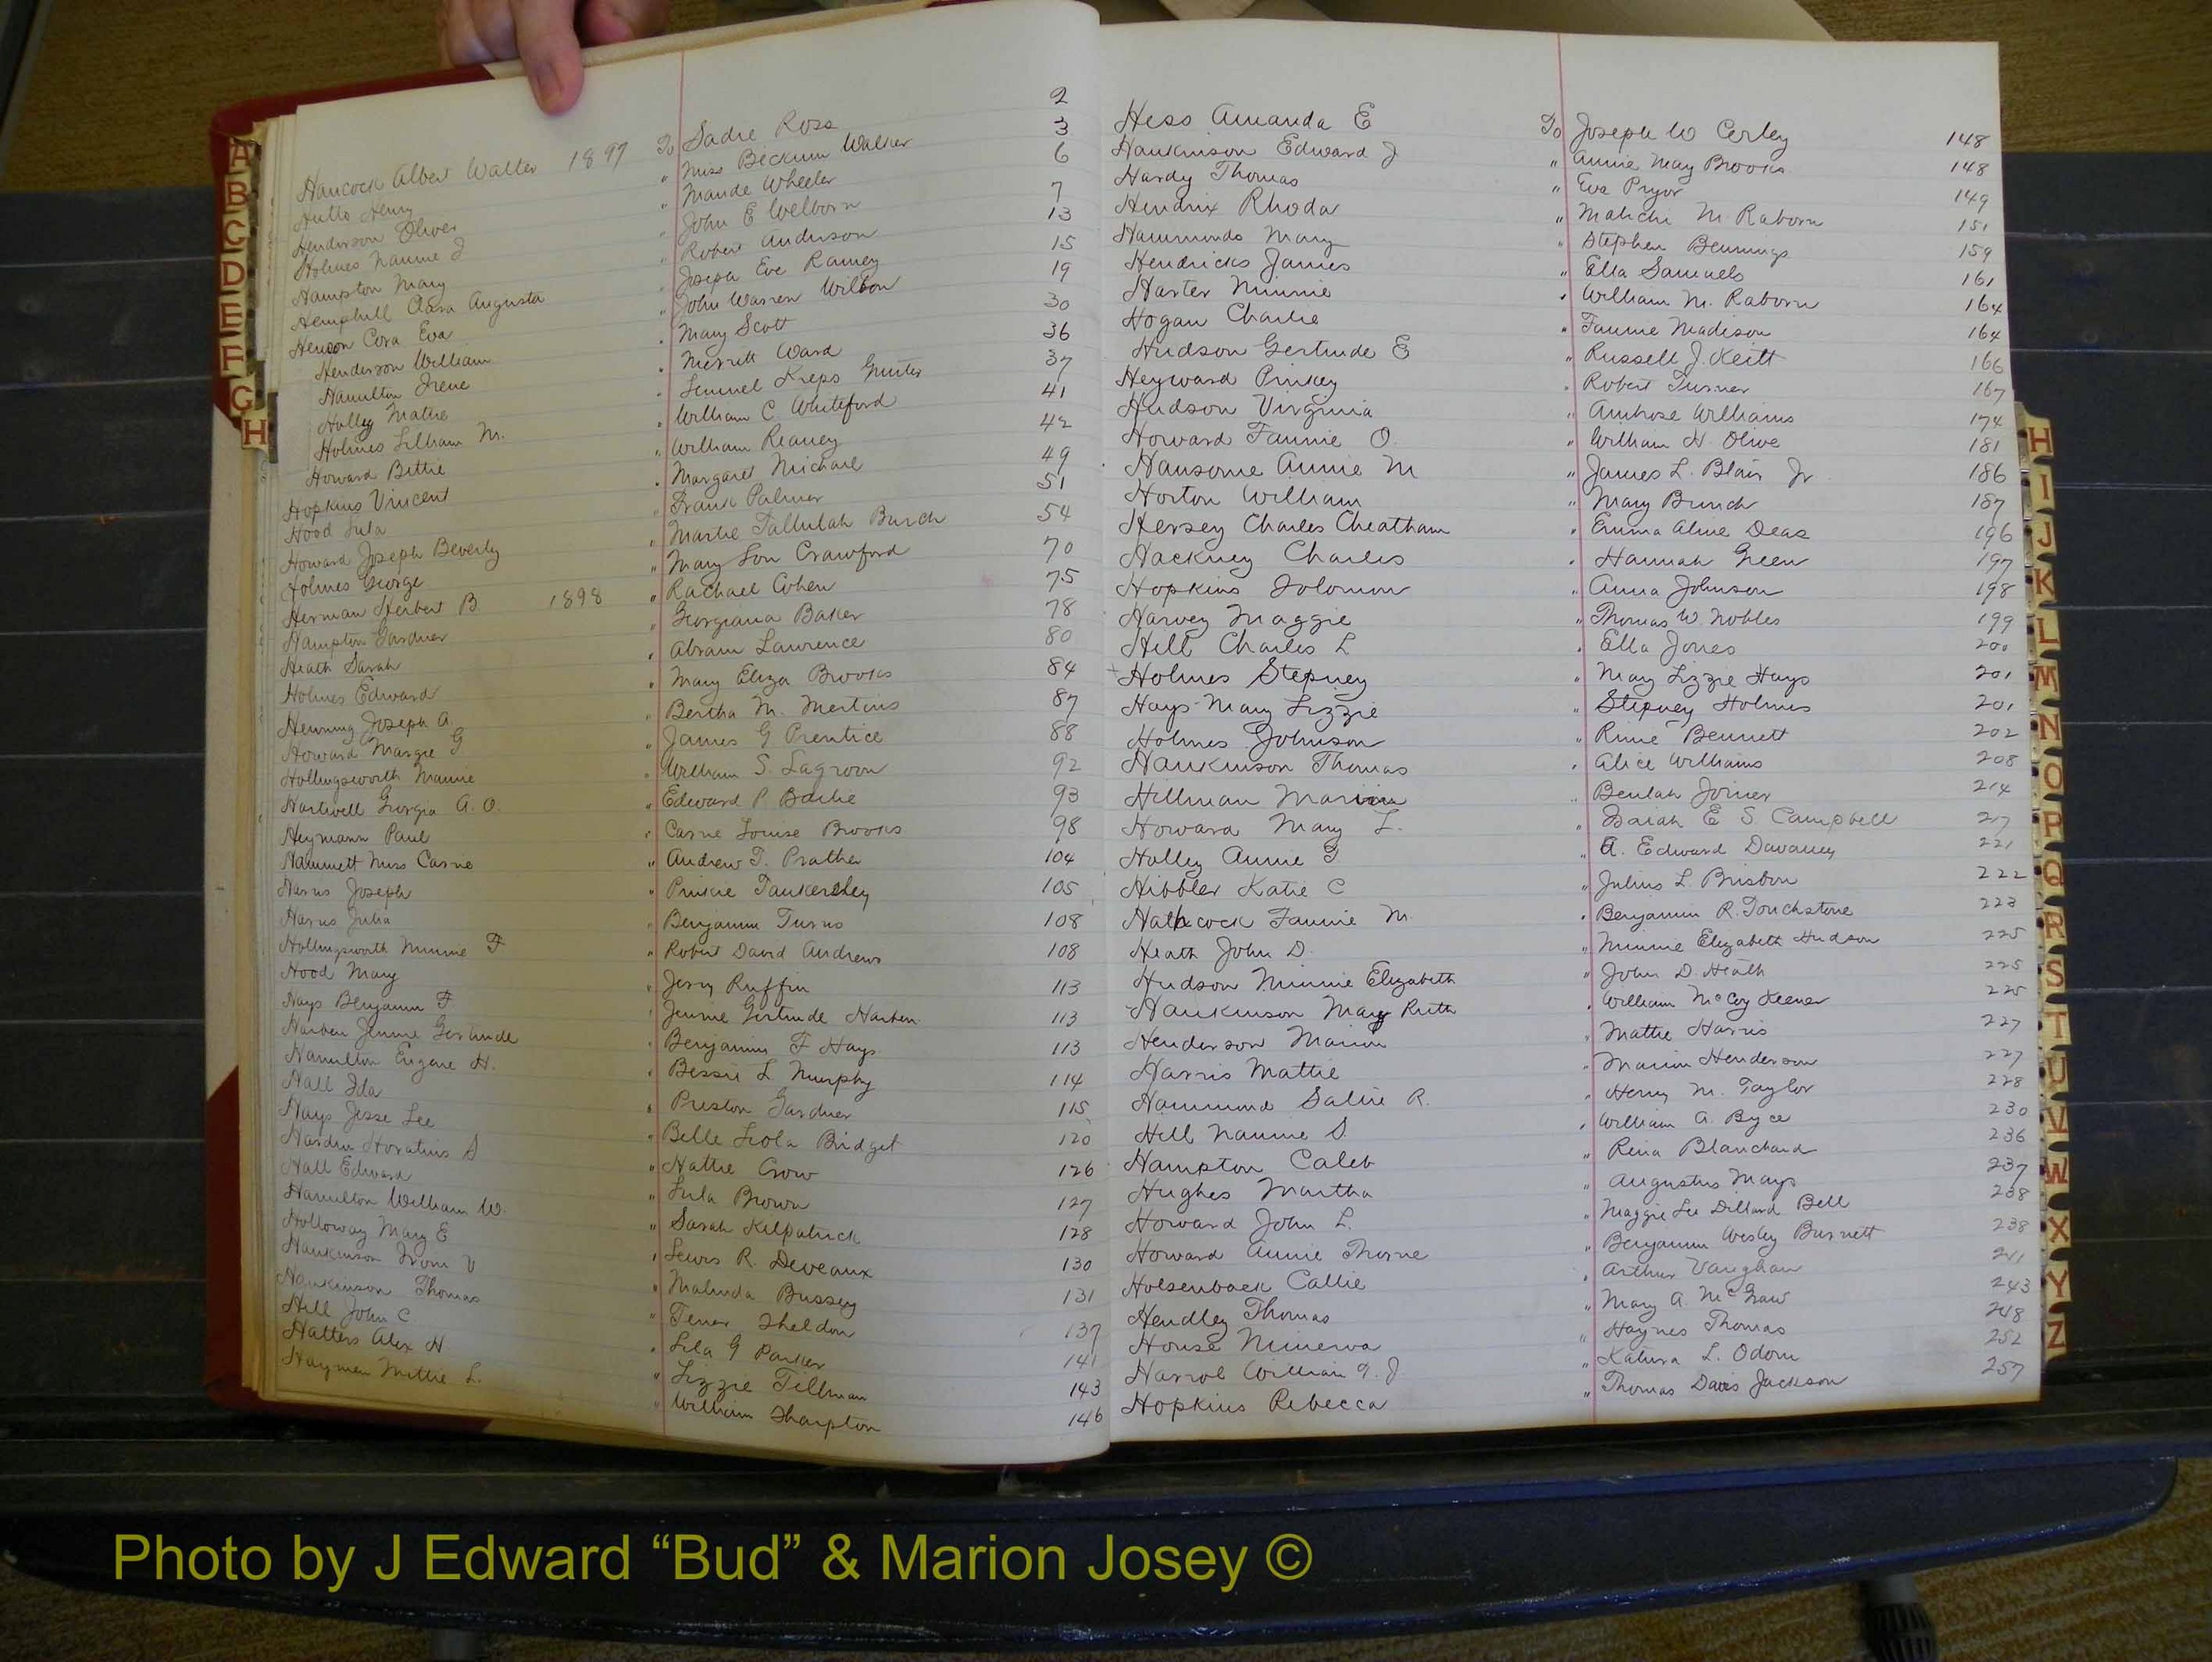 Hancock Albert Walter 1897 To Sadie Ross 2
Hutto Henry " Miss Beckum Walker 3
Henderson Oliver " Maude Wheeler 6
Holmes Nannie J " John E Welborn 7
Hampton Mary " Robert Anderson 13
Hemphill Clara Augusta " Joseph Eve Ramey 15
Henson Cora Eva " John Warren Wilson 19
Henderson William " Mary Scott 30
Hamilton Irene " Merritt Ward 36
Holley Mattie " Lemuel Kreps Gunter 37
Holmes Lilliam M. " William C Whiteford 41
Howard Bettie " William Reaney 42
Hopkins Vincent " Margaret Michael 49
Hood Lula " Frank Palmer 51
Howard Joseph Beverly " Martie Tallulah Burch 54
Holmes George " Mary Lou Crawford 70
Herman Herbert B 1898 " Rachael Cohen 75
Hampton Gardner " Georgiana Baker 78
Heath Sarah " Abram Lawrence 80
Holmes Edward " Mary Eliza Brooks 84
Henning Joseph A. " Bertha M. Mertins 87
Howard Margie G " James G Prentice 88
Hollingsworth Mamie " William S. Lagroon 92
Hartwell Georgia A. O. " Edward P Bailie 93
Heymann Paul " Carrie Louise Brooks 98
Hammett Miss Carrie " Andrew T. Prather 104
Harris Joseph " Pinkie Tankersley 105
Harris Julia " Benjamin Turns 108
Hollingsworth Minnie F " Robert David Andrews 108
Hood Mary " Jerry Ruffin 113
Hays Benjamin F " Jennie Gertrude Harben 113
Harben Jennie Gertrude " Benjamin F Hays 113
Hamilton Eugene H. " Bessie L Murphy 114
Hall Ida " Preston Gardner 115
Hays Jesse Lee " Belle Leola Bridget 120
Hardin Horatius S " Hattie Crow 126
Hall Edward " Lula Brown 127
Hamilton William W. " Sarah Kilpatrick 128
Holloway Mary E " Lewis R. Deveaux 130
Hankinson V " Malinda Bussey 131
Hankinson Thomas " Tener Sheldon 137
Hill John C " Lila G Parker 141
Hatters Alex H " Lizzie Tillman 143
Haymen Mittie L. " William Sharpton 146
Hess Amanda E To Joseph W Cerley 148
Hankinson Edward J. " Annie May Brooks 148
Hardy Thomas " Eva Pryor 149
Hendrix Rhoda " Malichi M. Raborn 151
Hammonds Mary " Stephen Bennings 159
Hendricks James " Ella Samuels 161
Harter Minnie " William M. Raborn 164
Hogan Charlie " Fannie Madison 164
Hudson Gertrude E " Russell J. Keitt 166
Heyward Pinkey " Robert Turner 167
Hudson Virginia " Ambrose Williams 174
Howard Fannie O. " William H. Olive 181
Hansome Annie M " James L. Blair Jr 186
Horton William " Mary Bunch 187
Hersey Charles Cheatham " Emma Aline Deas 196
Hackney Charles " Hannah Green 197
Hopkins Solomon " Anna Johnson 198
Harvey Maggie " Thomas W. Nobles 199
Hill Charles L " Ella Jones 200
Holmes Stepney " May Lizzie Hays 201
Hays Mary Lizzie " Stepney Holmes 201
Holmes Johnson " Rinie Bennett 202
Hankinson Thomas " Alice Williams 208
Hillman " Beulah Joiner 214
Howard Mary L. " Isaiah E S. Campbell 217
Holley Annie G " A. Edward 221
Hibbler Katie C " Julius L. Brisbon 222
Hathcock Fannie M. " Benjamin R. Touchstone 223
Heath John D. " Minnie Elizabeth Hudson 225
Hudson Minnie Elizabeth " John D. Heath 225
Hankinson Mary Ruth " William McCoy Keener 225
Henderson Marion " Mattie Harris 227
Harris Mattie " Marion Henderson 227
Hammond Sallie R. " Henry M. Taylor 228
Hill Nannie S. " William A. Byce 230
Hampton Caleb " Rena Blanchard 236
Hughes Martha " Augustus Mays 237
Howard John L. " Maggie Lee Dillard Bell 238
Howard Annie Thorne " Benjamin Wesley Burnett 238
Holsenback Callie " Arthur Vaughan 241
Hendley Thomas " Mary A. McGraw 243
House Minerva " Haynes Thomas 248
Harrol William T. J. " Katura L. Odom 252
Hopkins Rebecca " Thomas Davis Jackson 257
A
B
C
D
E
F
G
H
H
I
J
K
L
M
N
O
P
Q
R
S
T
U
V
W
X
Y
Z
Photo by J Edward “Bud” & Marion Josey ©